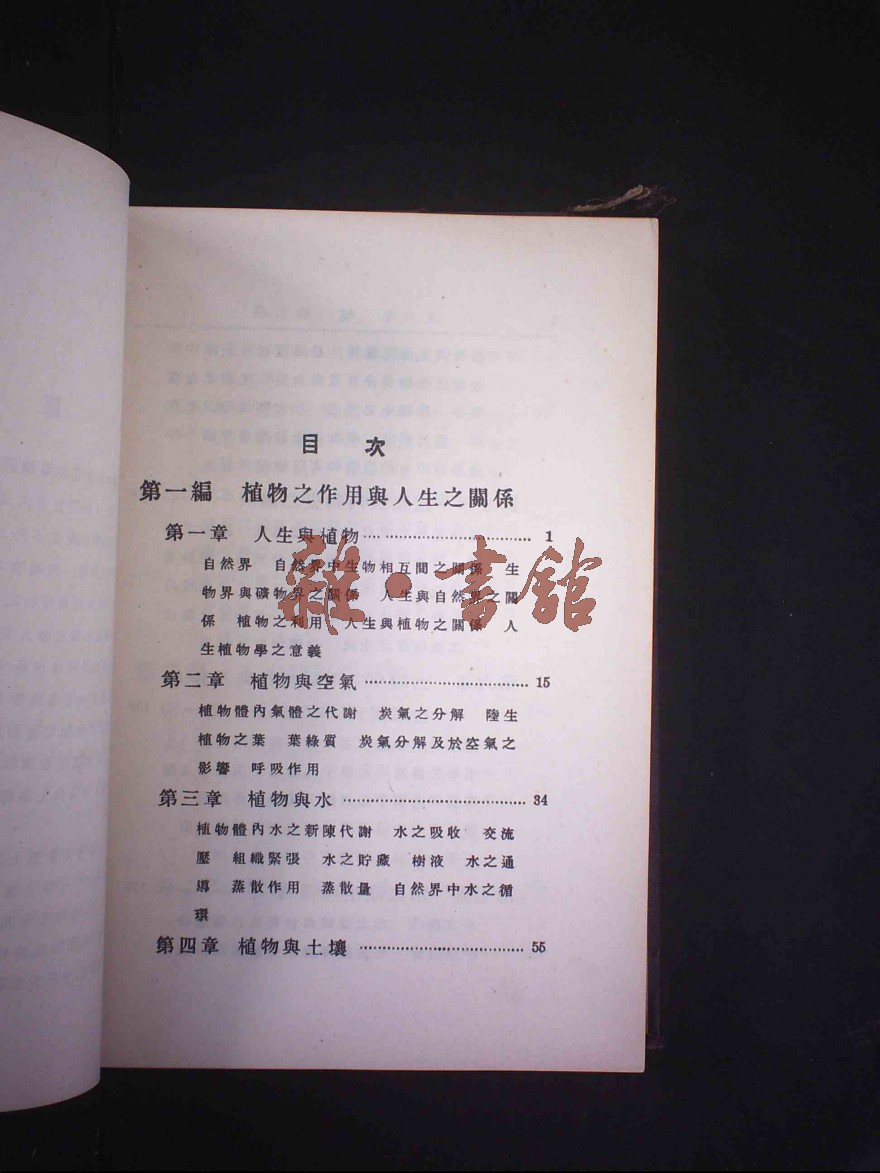 目 次
第一編 植物之作用與人生之關係
第一章 人生與植物 …………………………… 1
自然界 自然界中生物相互間之關係 生
物界與礦物界之關係 人生與自然界之關
係 植物之利用 人生與植物之關係 人
生植物學之意義
第二章 植物與空氣 …………………………… 15
植物體內氣體之代謝 炭氣之分解 陸生
植物之葉 葉綠質 炭氣分解及於空氣之
影響 呼吸作用
第三章 植物與水 …………………………… 34
植物體內水之新陳代謝 水之吸收 交流
壓 組織緊張 水之貯藏 樹液 水之通
導 蒸散作用 蒸散量 自然界中水之循
環
第四章 植物與土壤 …………………………… 55
雜·書館